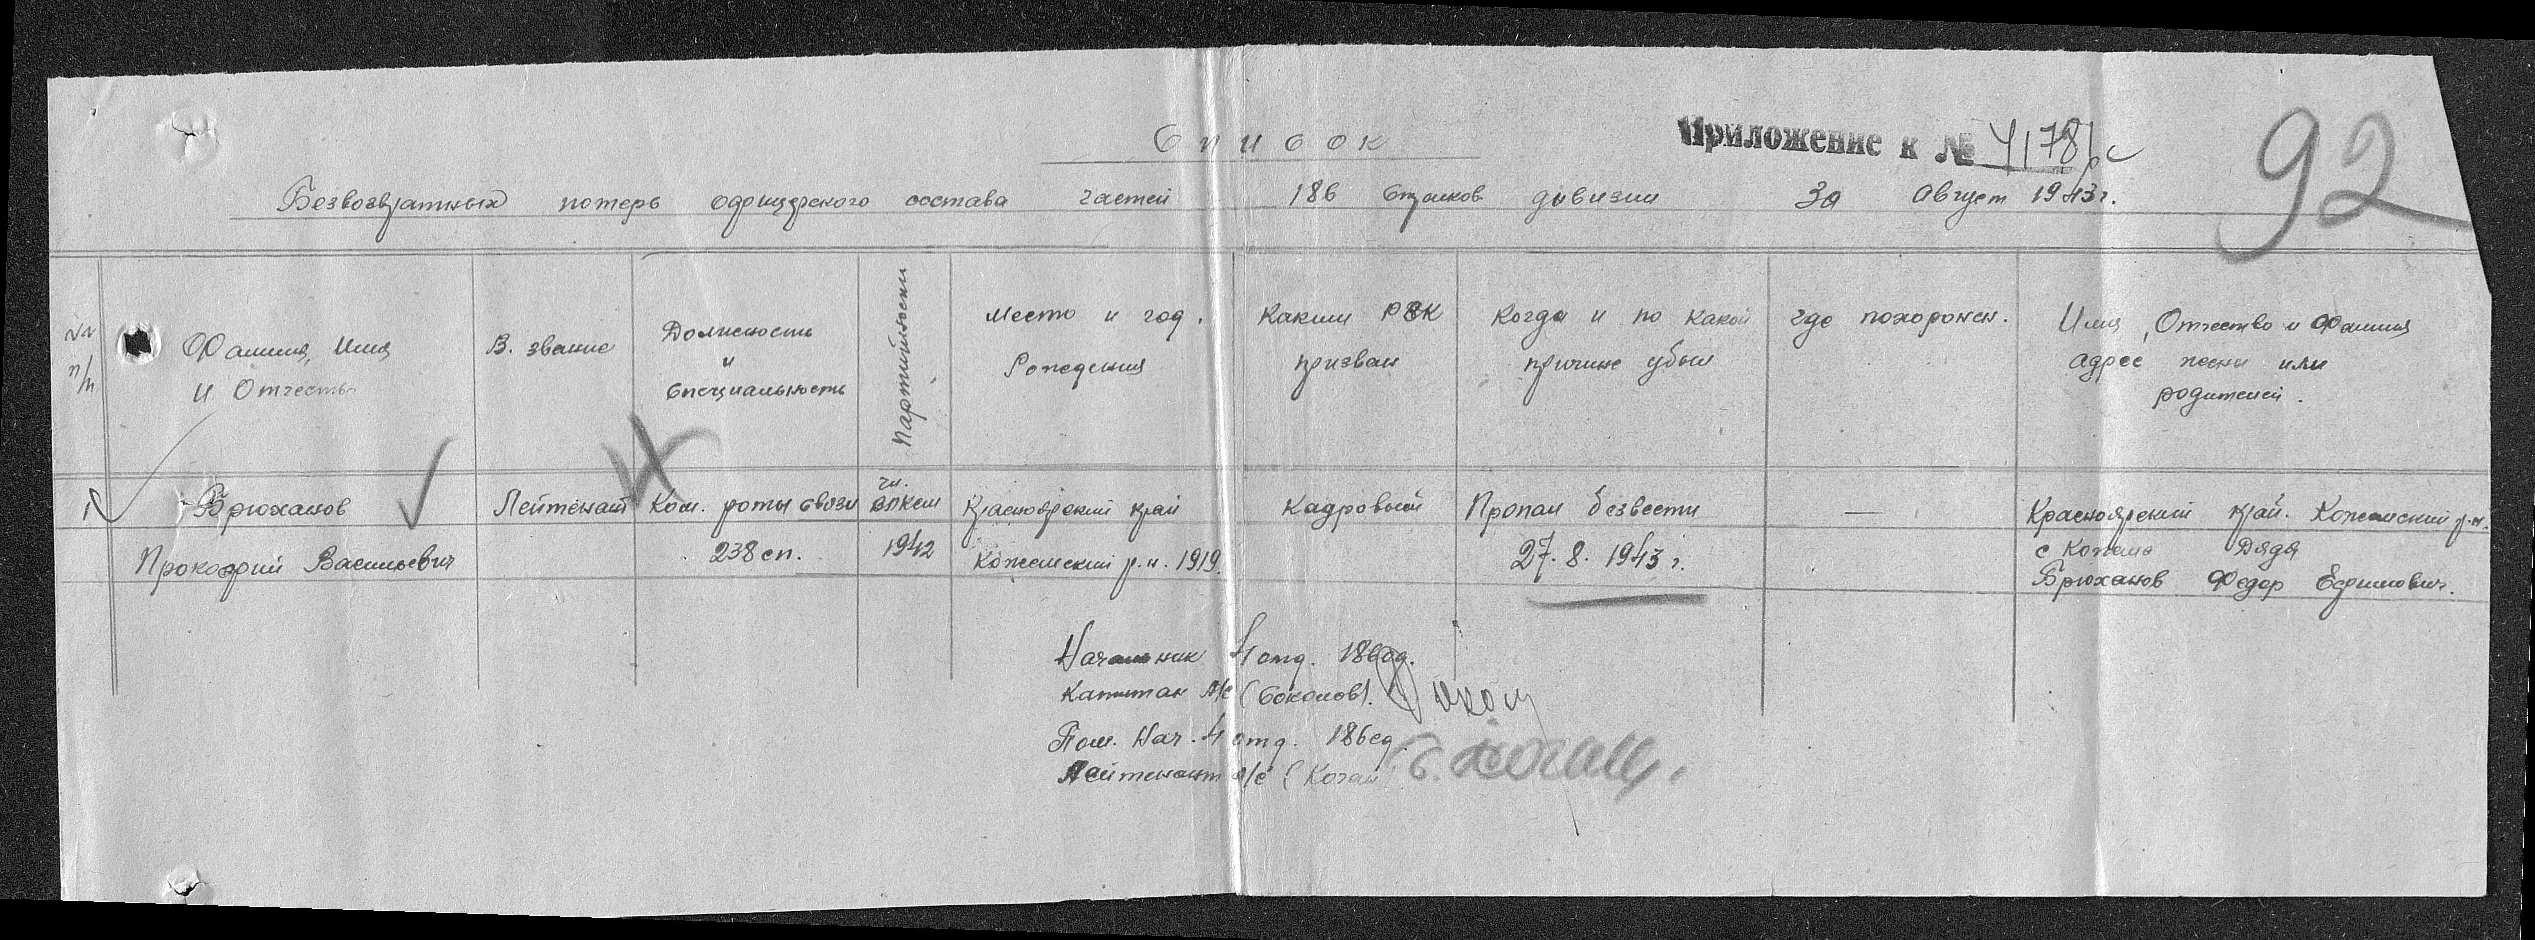 Список
Приложение к № 41781с
92
Безвозвратных потерь офицерского состава частей 186 стрелков. дивизии за Август 1943г.
№№ п/п
Фамилия, Имя и Отчество
В. звание
Должность и специальность
Партийность
Место и год Рождения
Каким РВК призван
Когда и по какой причине убыл
Где похоронен.
Имя, Отчество и Фамилия адрес жены или родителей.
1 Брюханов Лейтенант Ком. роты связи чл. ВЛКСМ Красноярский край Кадровый Пропал безвести — Красноярский край. Кежемский р.н.
Прокофий Васильевич 238 сп. 1942 Кежемский р.н. 1919. 27.8.1943 г. с Кежма Дядя
Брюханов Федор Ефимович.
Начальник 4 отд. 186сд.
Капитан А/с (Соколов).
Пом. Нач. 4 отд. 186сд.
Лейтенант а/с (Коган)